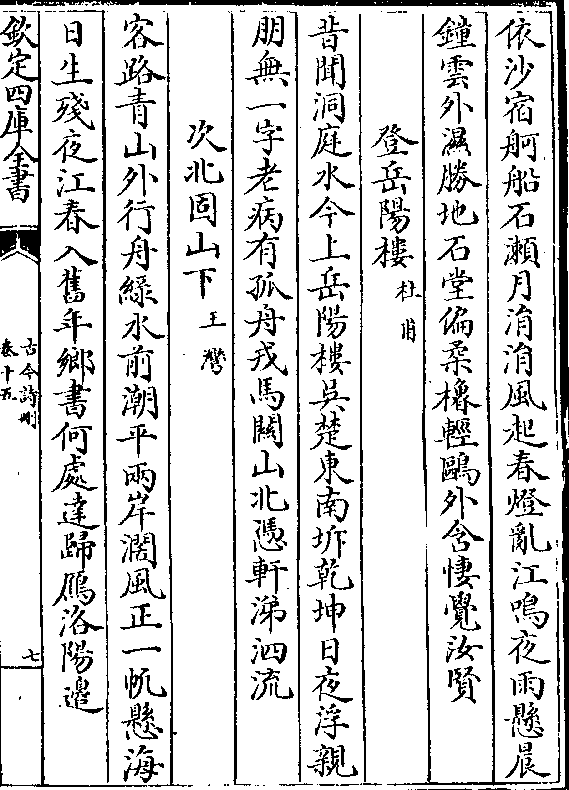 依沙宿舸船石瀨月涓涓風起春燈亂江鳴夜雨懸晨
鐘雲外濕勝地石堂偏柔櫓輕鷗外含悽覺汝賢
登岳陽樓 杜甫
昔聞洞庭水今上岳陽樓吳楚東南坼乾坤日夜浮親
朋無一字老病有孤舟戎馬關山北憑軒涕泗流
次北固山下 王灣
客路青山外行舟綠水前潮平兩岸濶風正一帆懸海
日生殘夜江春入舊年鄉書何處達歸鴈洛陽邉
欽定四庫全書
古今詩刪
卷十五
七